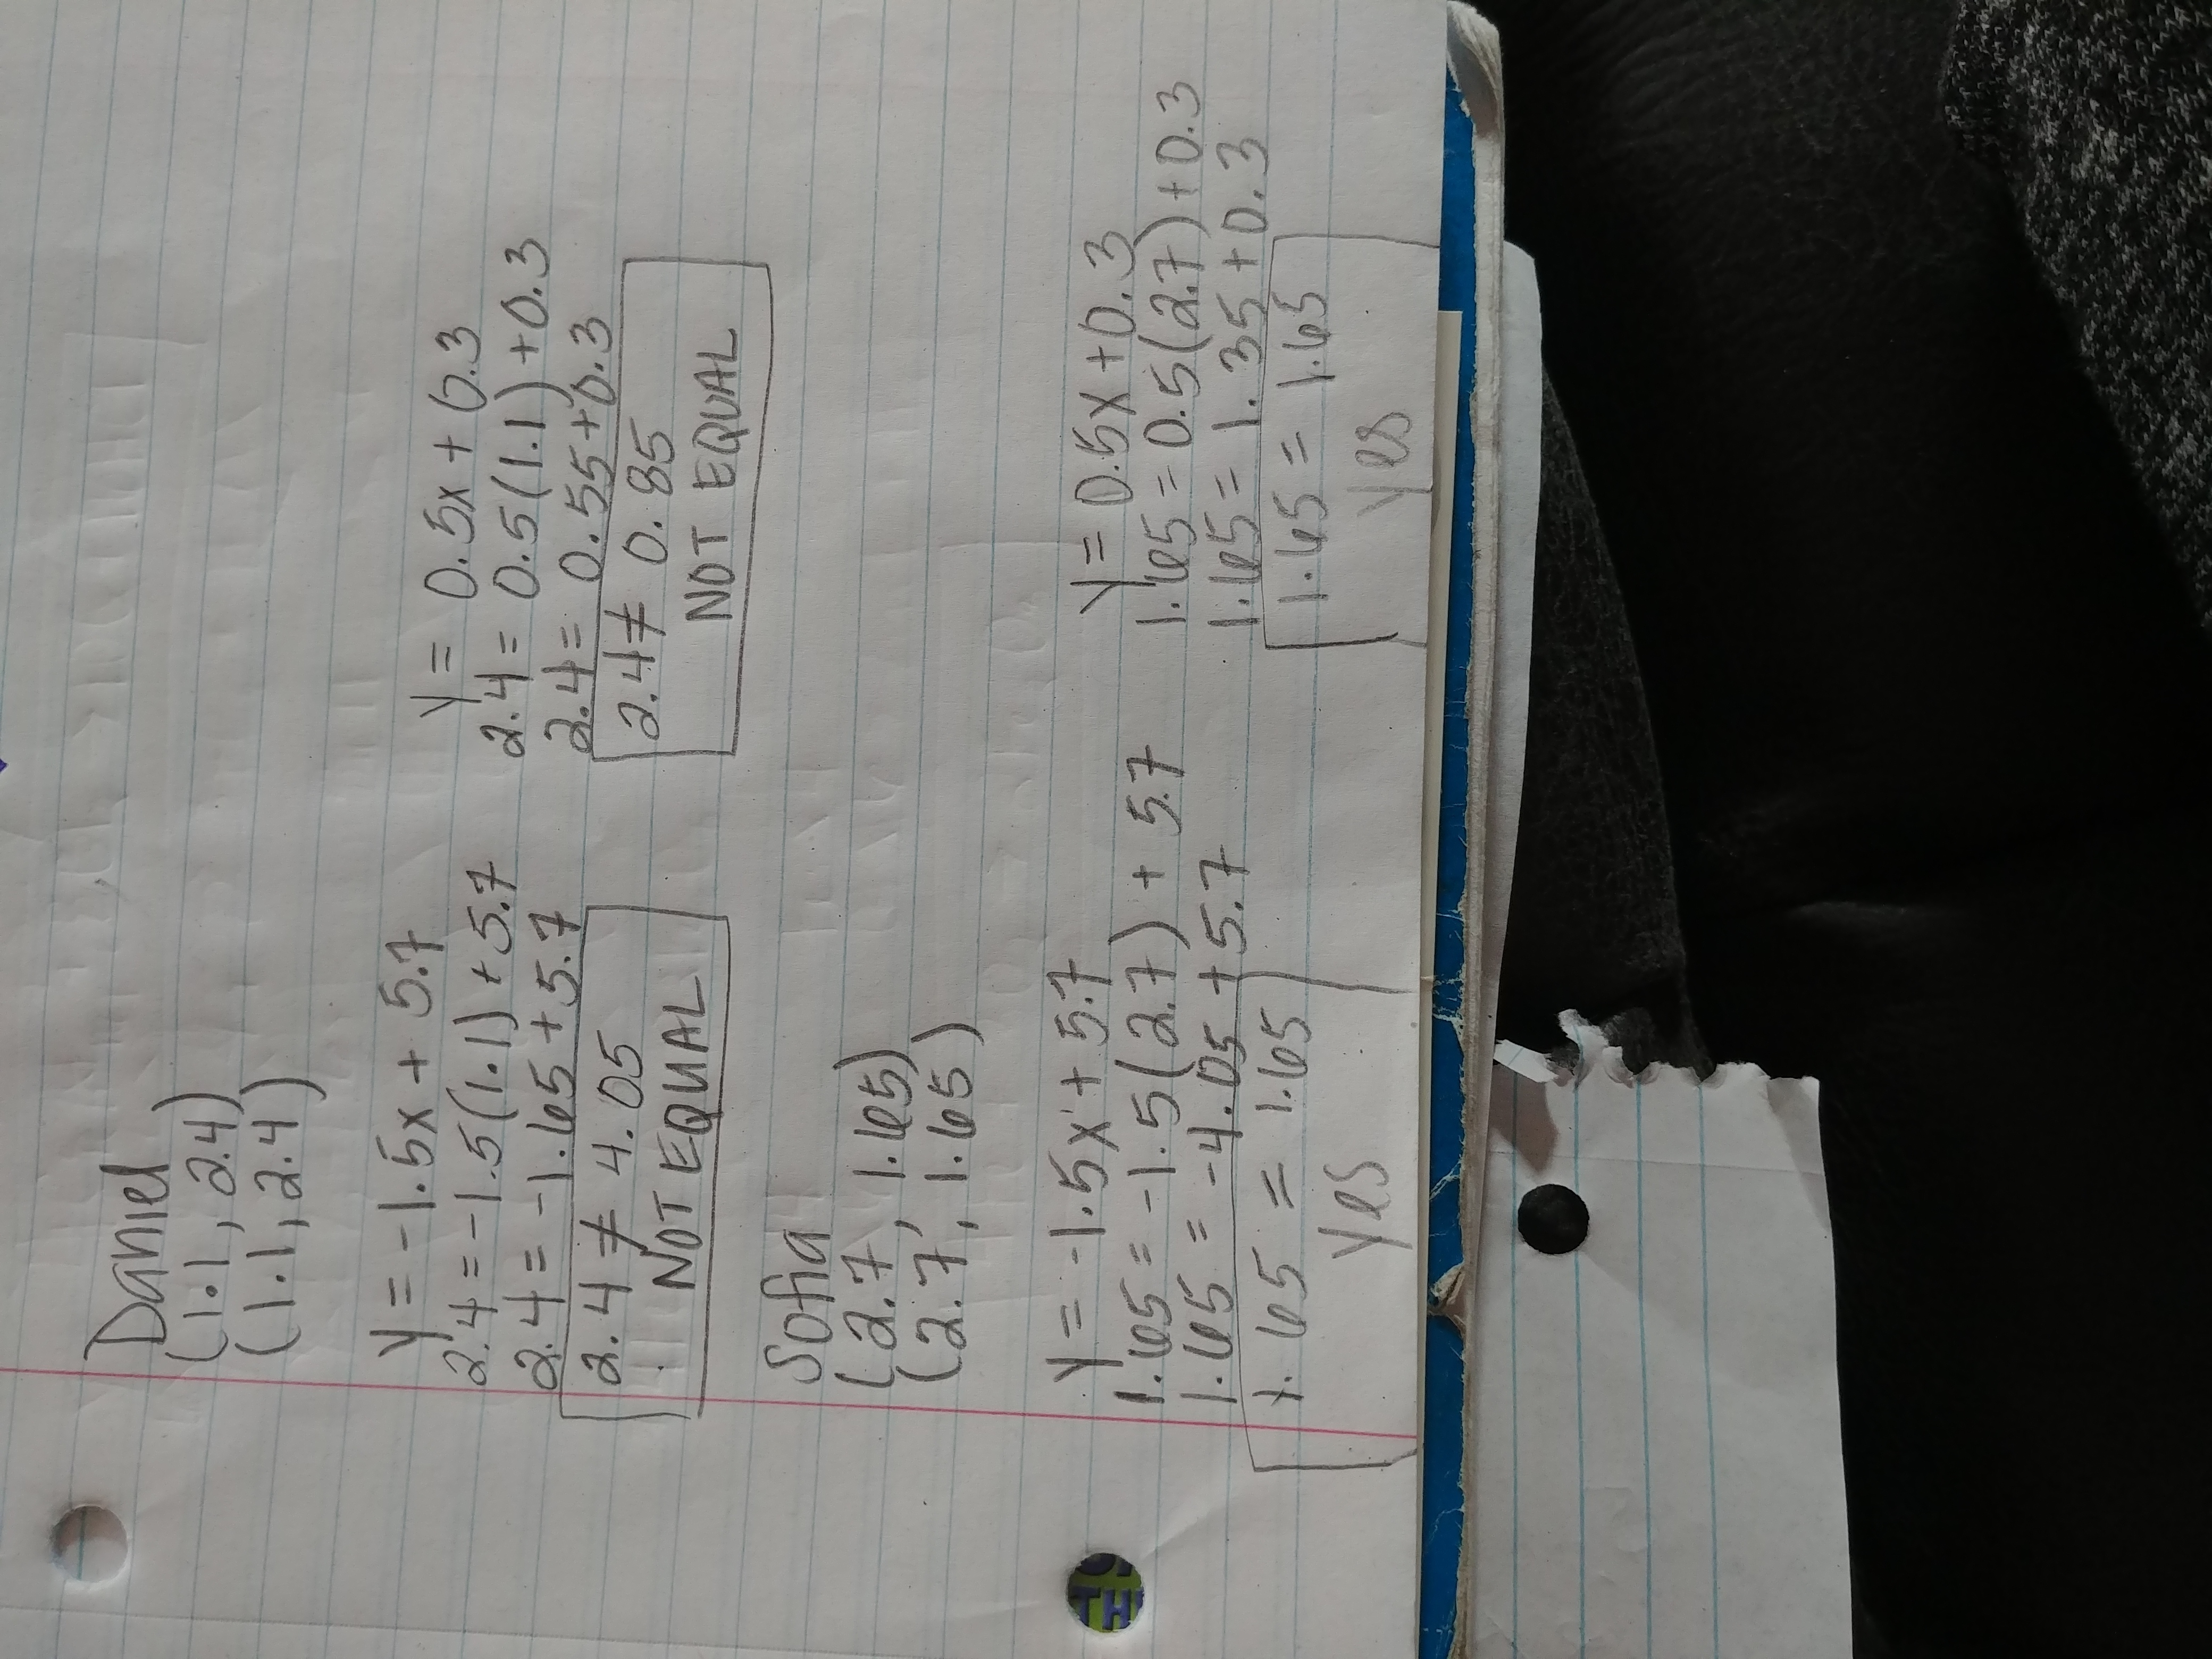 Daniel
(1.1, 2.4)
(1.1, 2.4)
y = -1.5x + 5.7
2.4 = -1.5(1.1) + 5.7
2.4 = -1.65 + 5.7
2.4 ≠ 4.05
NOT EQUAL
y = 0.5x + 0.3
2.4 = 0.5(1.1) + 0.3
2.4 = 0.55 + 0.3
2.4 ≠ 0.85
NOT EQUAL
Sofia
(2.7, 1.65)
(2.7, 1.65)
y = -1.5x + 5.7
1.65 = -1.5(2.7) + 5.7
1.65 = -4.05 + 5.7
1.65 = 1.65
Yes
y = 0.5x + 0.3
1.65 = 0.5(2.7) + 0.3
1.65 = 1.35 + 0.3
1.65 = 1.65
Yes
TH